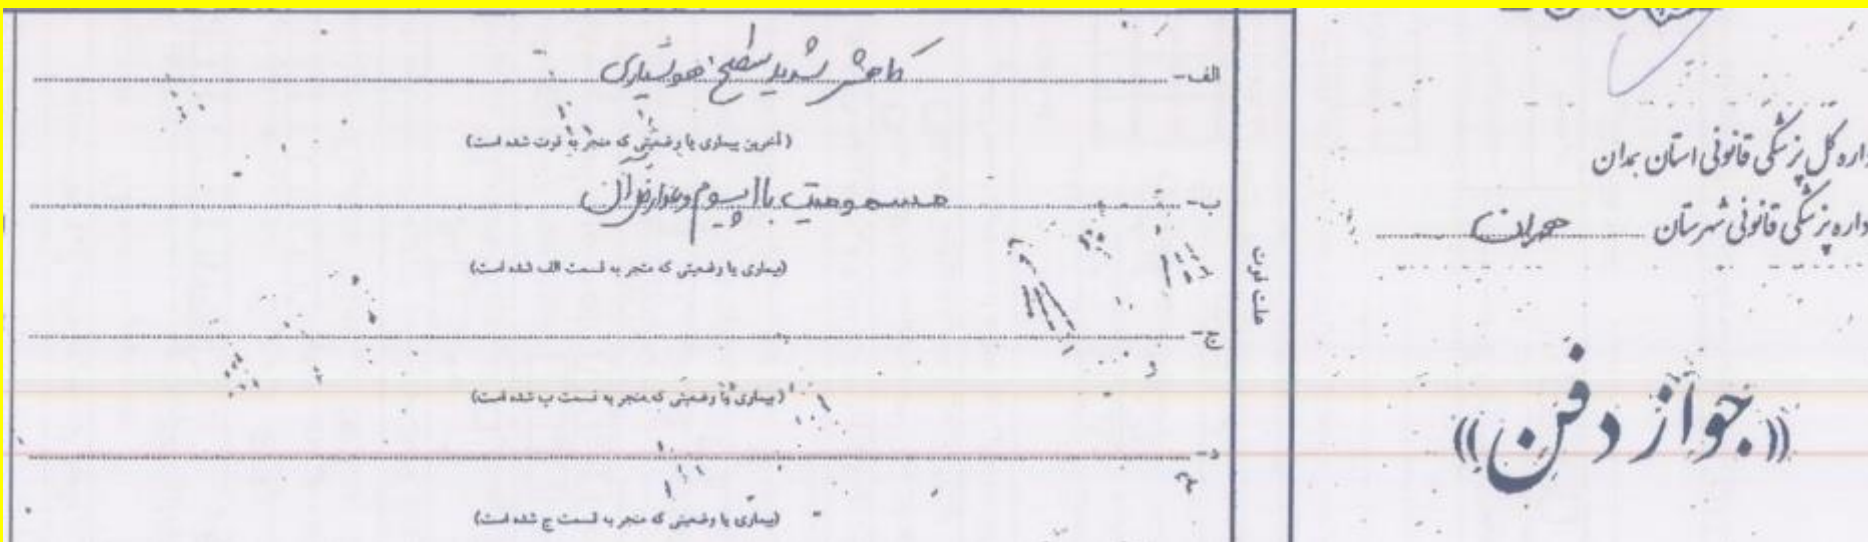 اداره کل پزشکی قانونی استان همدان
اداره پزشکی قانونی شهرستان همدان
«جواز دفن»
علت فوت
الف- کاهش شدید سطح هوشیاری
(آخرین بیماری یا وضعیتی که منجر به فوت شده است)
ب- مسمومیت با اپیوم و
(بیماری یا وضعیتی که منجر به قسمت الف شده است)
ج-
(بیماری یا وضعیتی که منجر به قسمت ب شده است)
د-
(بیماری یا وضعیتی که منجر به قسمت ج شده است)